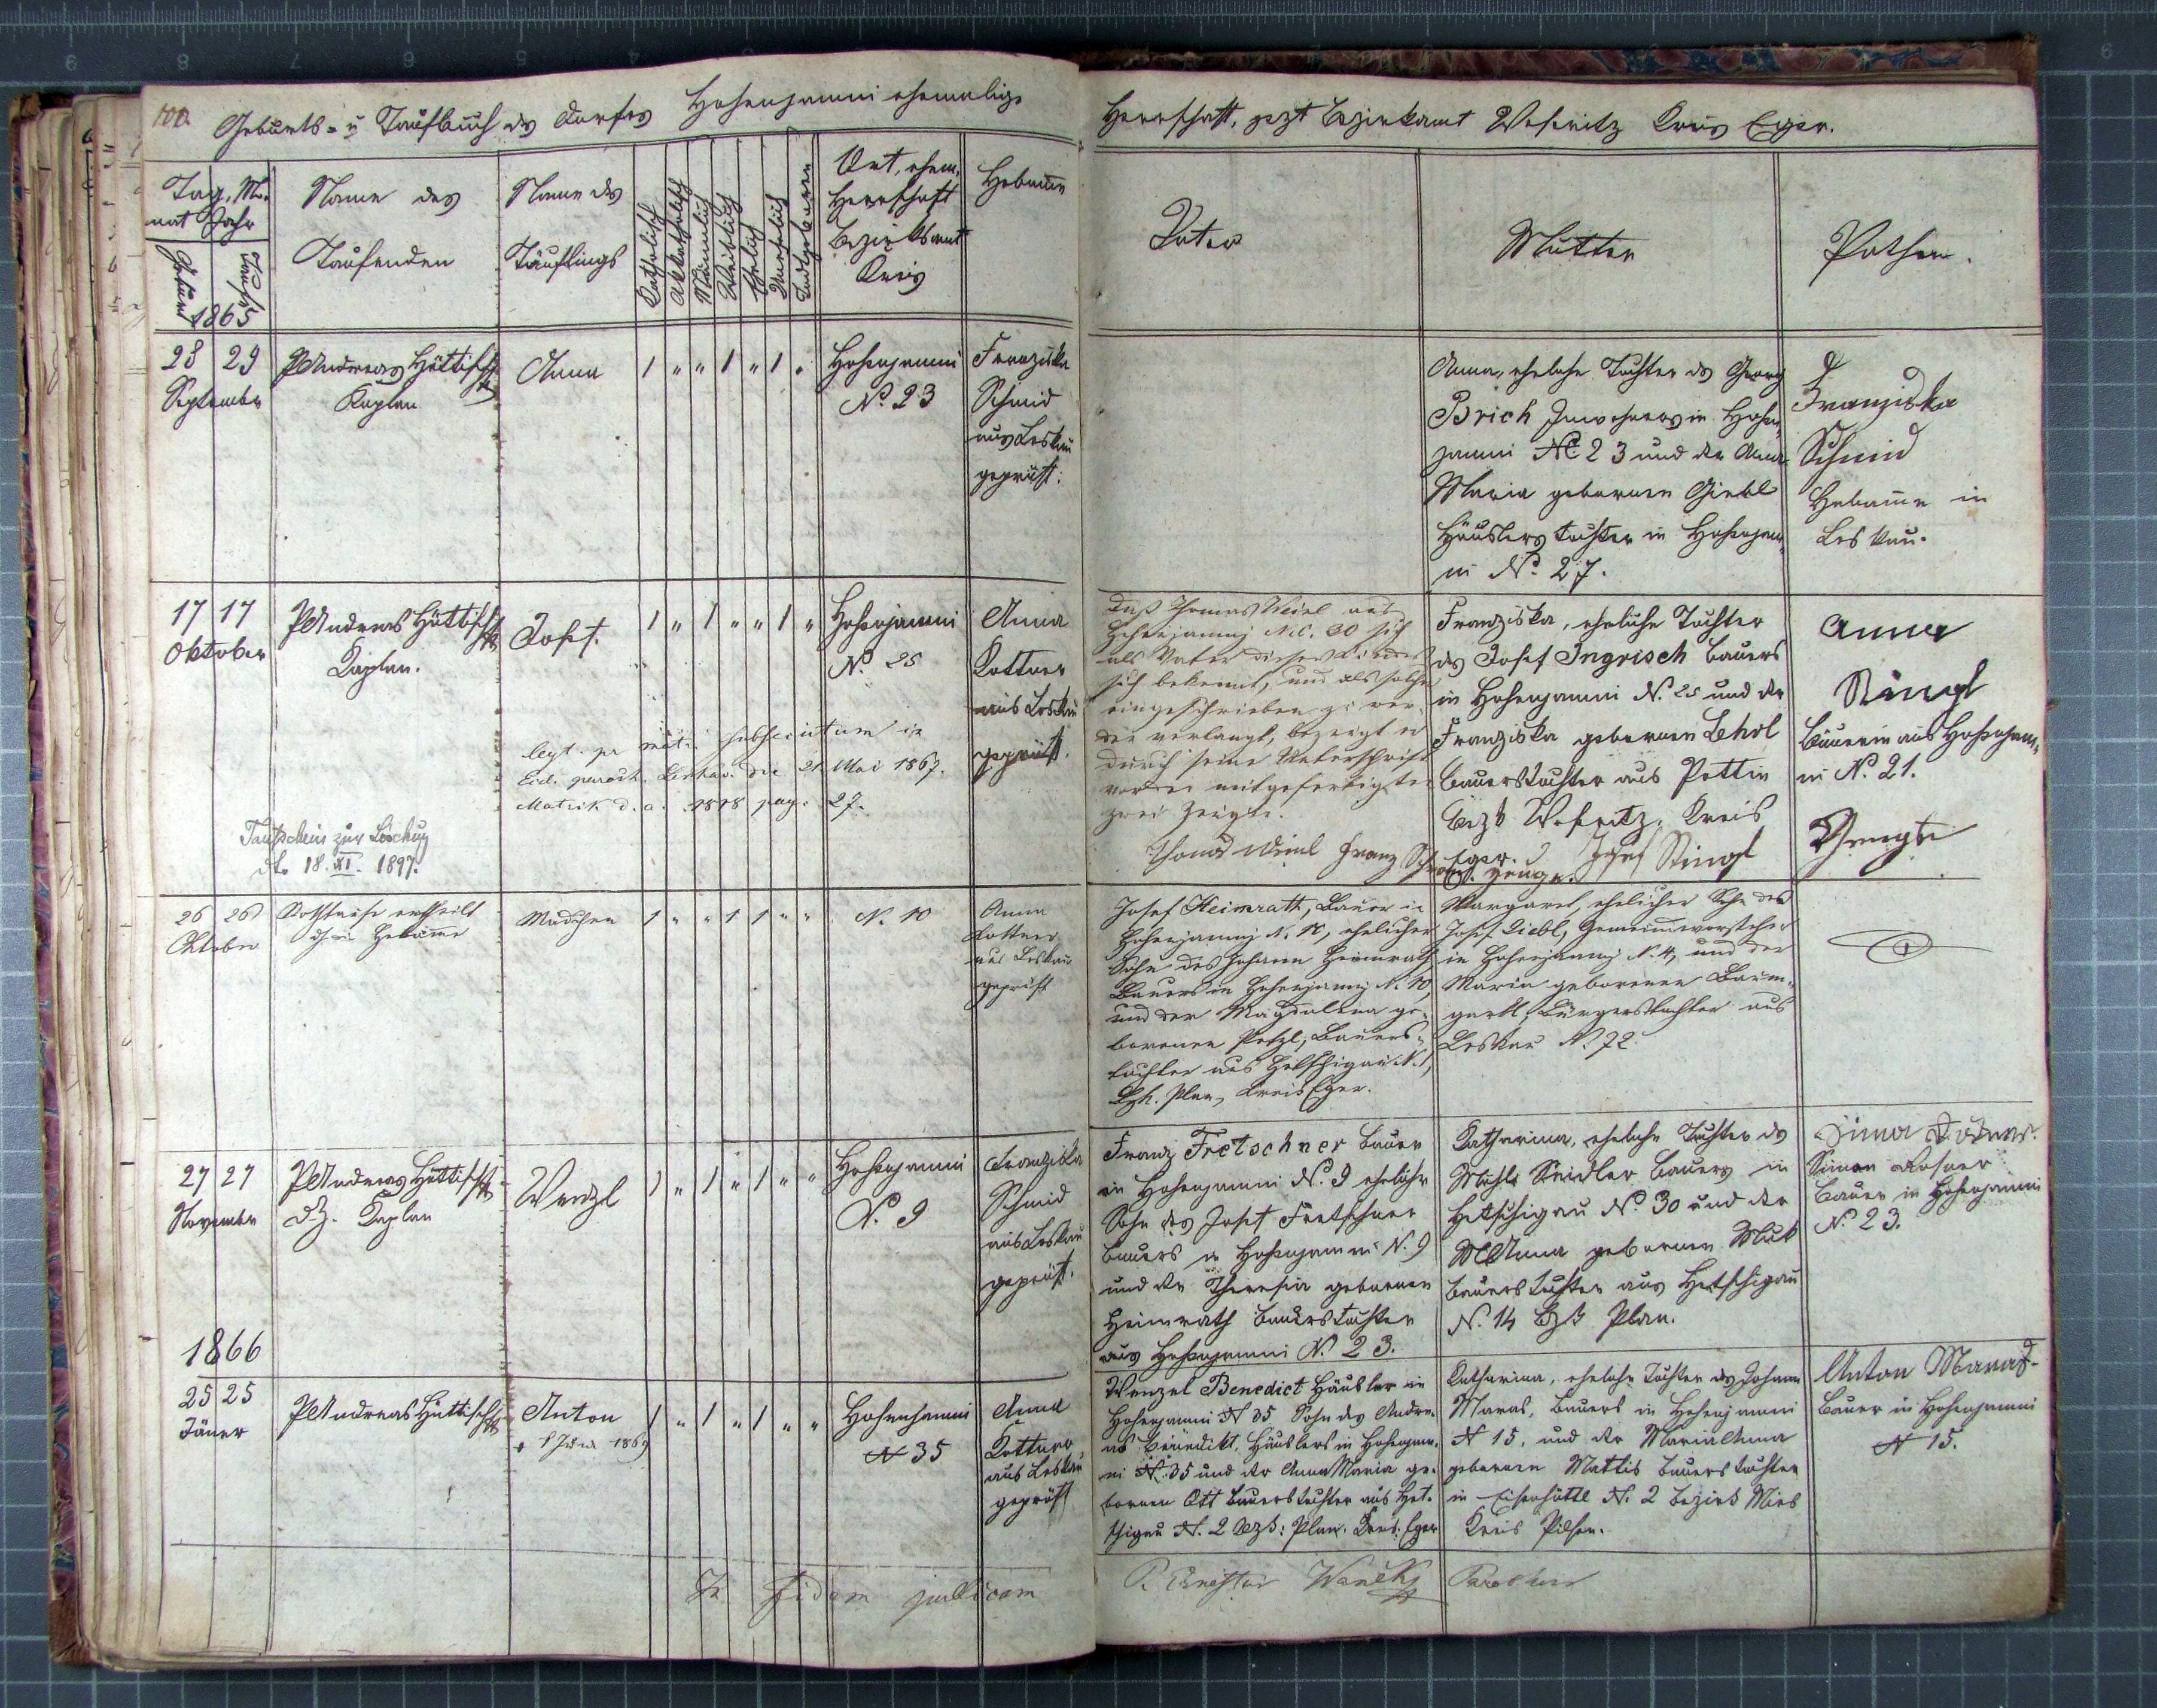 Geburts- u Taufbuch des Dorfes Hohenjamni ehemalige
Herrschaft, jezt Bezirkamt Weseritz Kreis Eger.
Tag, Mo-
nat Jahr
Geburt
Taufe
1865
Name des
Taufenden
Name des
Täuflings
Katholisch
Akatholisch
Männlich
Weiblich
Ehelich
Unehelich
Todtgeboren
Ort, ehem.
Herrschaft
Bezirksamt
Kreis
Hebamme
Vater
Mutter
Pathen.
28 29
September
P Andreas Hüttisch
Kaplan
Anna
1 " " 1 " 1 "
Hohenjamni
No. 23
Franziska
Schmid
aus Leskau
geprüft.
Anna, eheliche Tochter des Georg
Brich Inwohners in Hohen-
jamni No 23 und der Anna
Maria gebornen Giebl
Häuslers Tochter in Hohenjam-
ni No. 27.
Franziska
Schmid
Hebamme in
Leskau.
17 17
Oktober
P Andreas Hüttisch
Kaplan.
Josef.
1 " 1 " " 1 "
Hohenjamni
No. 25
Anna
Kottner
aus Leskau
geprüft.
legt. per matr. subsecutum in
Eccl. paroch. Leskav. die 21 Mai 1867.
Matrik d. a. 1818 pag. 27.
Taufschein zur Löschung
dto 18. XI. 1897.
Daß Thomas Weiel aus
Hohenjamnij No. 30 sich
als Vater dieses Kindes
sich bekennt, und als solcher
eingeschrieben zu wer-
den verlangt, bezeigt er
durch seine Unterschrift
vor den mitgefertigten
zwei Zeugen.
Franziska, eheliche Tochter
des Josef Ingrisch Bauers
in Hohenjamni N. 25 und der
Franziska gebornen Lehrl
Bauerstochter aus Pottin
Bezk Weseritz, Kreis
Eger.
Thomas Franz Zeuge. Josef Stingl
Anna
Stingl
Bäuerin aus Hohenjam-
ni N. 21.
Zeugte
26 26
Oktober
Nothtaufe ertheilt
durch Hebamme
Mädchen
1 " " 1 1 " "
N. 10
Anna
Kottner
aus Leskau
geprüft
Josef Heimrath, Bauer in
Hohenjamnij N. 10, ehelicher
Sohn des Johann Heimrath
Bauers in Hohenjamnij N. 10,
und der Magdalena ge-
borenen Petzl, Bauers-
tochter aus Hetschigau N. 1,
Bzk. Plan, Kreis Eger.
Margaret, ehelicher Sohn des
Josef Giebl, Gemeindevorsteher
in Hohenjamnij N. 4, und der
Maria geborenen Baum-
gartl, Bürgerstochter aus
Leskau N. 72.
27 27
November
P Andreas Hüttisch
d. Z. Kaplan
Wenzl
1 " 1 " 1 " "
Hohenjamni
N. 9
Franziska
Schmid
aus Leskau
geprüft.
Franz Fretschner Bauer
in Hohenjamni N. 9 ehelicher
Sohn des Josef Fretschner
Bauers in Hohenjamni N. 9
und der Theresia gebornen
Heimrath Bauerstochter
aus Hohenjamni N. 23.
Katharina, eheliche Tochter des
Michl Seidler Bauers in
Hetschigau No. 30 und der
M Anna gebornen
Bauers Tochter aus Hetschigau
N. 14 Bzk Plan.
Simon Rosner
Bauer in Hohenjamni
N. 23.
1866
25 25
Jäner
P Andreas Hüttisch
Anton
1869
1 " 1 " 1 " "
Hohenjamni
N 35
Anna
Kottner
aus Leskau
geprüft
Wenzel Benedict Häusler in
Hohenjamni N 35 Sohn des Andre-
as Benedikt, Häuslers in Hohenjam-
ni N. 35 und der Anna Maria ge-
bornen Ott Bauerstochter aus Het-
schigau N. 2 Bezk: Plan. Kreis: Eger
Katharina, eheliche Tochter des Johann
Maras, Bauers in Hohenjamni
N 15, und der Maria Anna
gebornen Mattis Bauerstochter
in Eisenhüttl N. 2 Bezirk Mies
Kreis Pilsen.
Anton Maras
Bauer in Hohenjamni
N 15.
In fidem publicam
P. Parochus